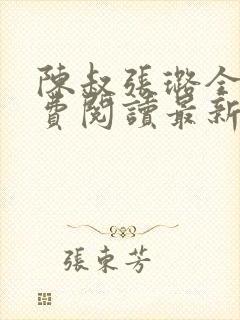 陳叔張璐全
費閱讀最新
張東芳